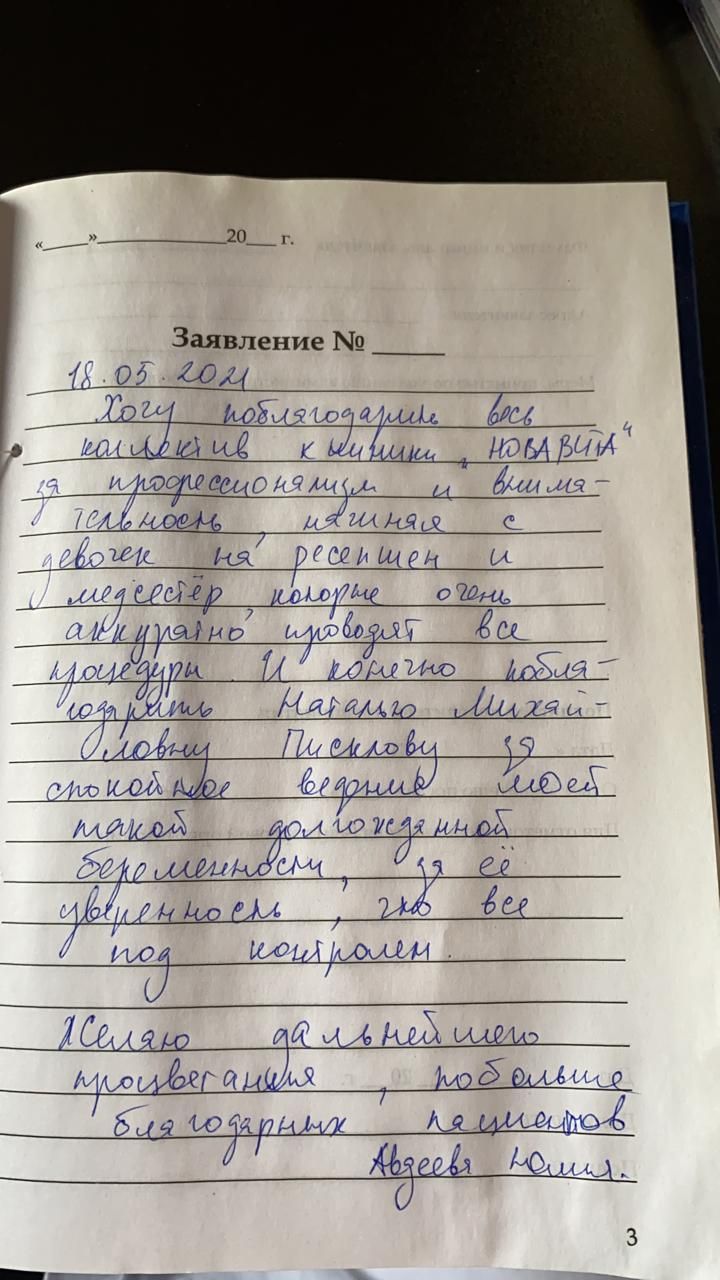 «____»____________20___ г.
Заявление № _____
18.05.2021
Хочу поблагодарить весь
коллектив клиники „НОВАВИТА“
за профессионализм и внима-
тельность, начиная с
девочек на ресепшен и
медсестёр, которые очень
аккуратно проводят все
процедуры. И конечно побла-
годарить Наталью Михай-
ловну Писклову за
спокойное ведение моей
такой долгожданной
беременности, за её
уверенность, что все
под контролем.
Желаю дальнейшего
процветания, побольше
благодарных пациентов
Авдеева Юлия.
3